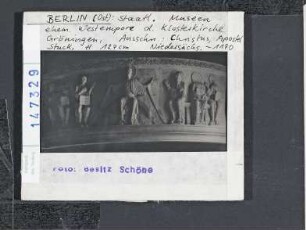 BERLIN (Ost): Staatl. Museen
ehem. Westempore d. Klosterkirche
Gröningen, Ausschn.: Christus, Apostel
Stuck, H 124 cm Niedersächs. ~ 1170
147329
Foto: Besitz Schöne